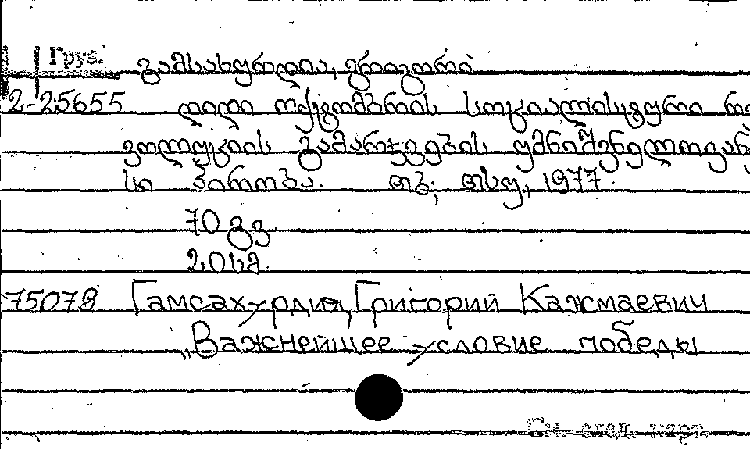 Груз.
გამსახურდია, გრიგორი
2-25655 დიდი ოქტომბრის სოციალისტური რე
ვოლუციის გამარჯვების უმნიშვნელოვანე
სი პირობა. თბ., თსუ, 1977.
70 გვ.
20სმ.
75078 Гамсахурдия, Григорий Кажмаевич
„Важнейшее условие победы
См. след. карт.